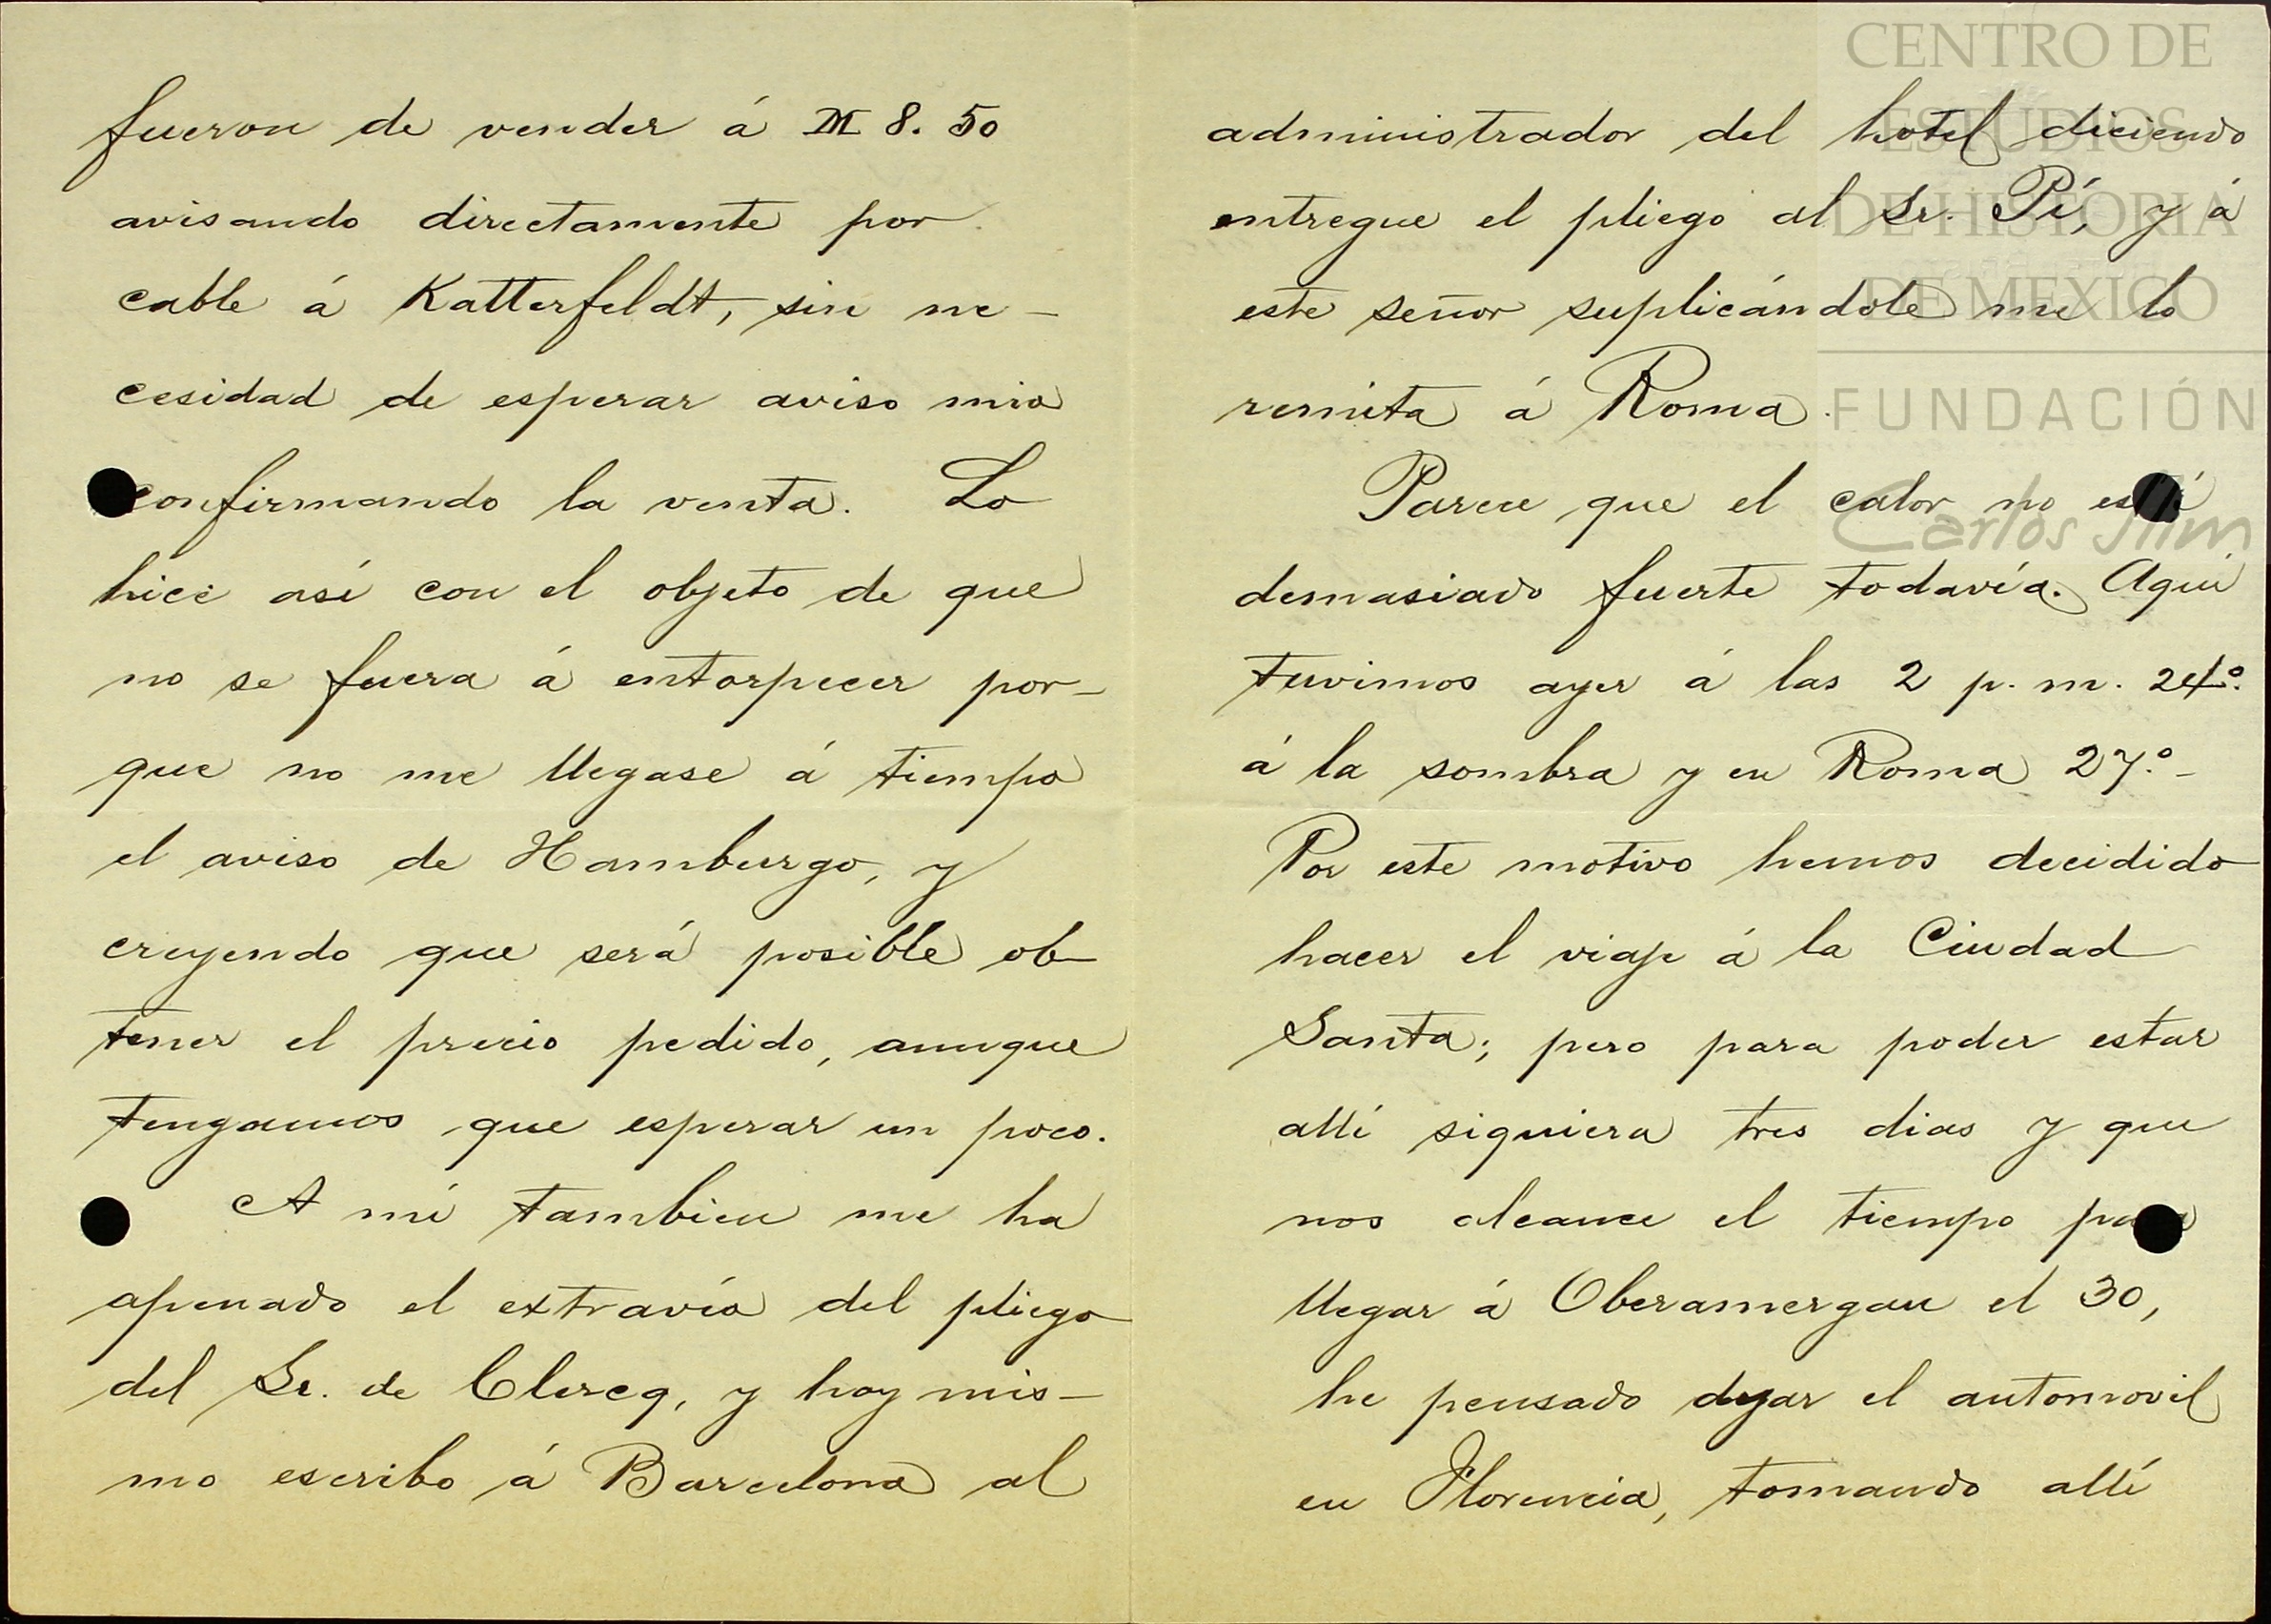 fueron de vender á M 8.50
avisando directamente por
cable á Katterfeldt, sin ne-
cesidad de esperar aviso mio
confirmando la venta. Lo
hice así con el objeto de que
no se fuera á entorpecer por-
que no me llegase á tiempo
el aviso de Hamburgo, y
creyendo que será posible ob-
tener el precio pedido, aunque
tengamos que esperar un poco.
A mí tambien me ha
apenado el extravío del pliego
del Sr. de Clercq, y hoy mis-
mo escribo á Barcelona al
administrador del hotel diciendo
entregue el pliego al Sr. Pí, y á
este señor suplicándole me lo
remita á Roma.
Parece que el calor no está
demasiado fuerte todavía. Aquí
tuvimos ayer á las 2 p. m. 24°.
á la sombra y en Roma 27.°-
Por este motivo hemos decidido
hacer el viaje á la Ciudad
Santa; pero para poder estar
allí siquiera tres dias y que
nos alcance el tiempo para
llegar á Oberamergau el 30,
he pensado dejar el automovil
en Florencia, tomando allí
CENTRO DE
ESTUDIOS
DE HISTORIA
DE MEXICO
FUNDACIÓN
Carlos Slim